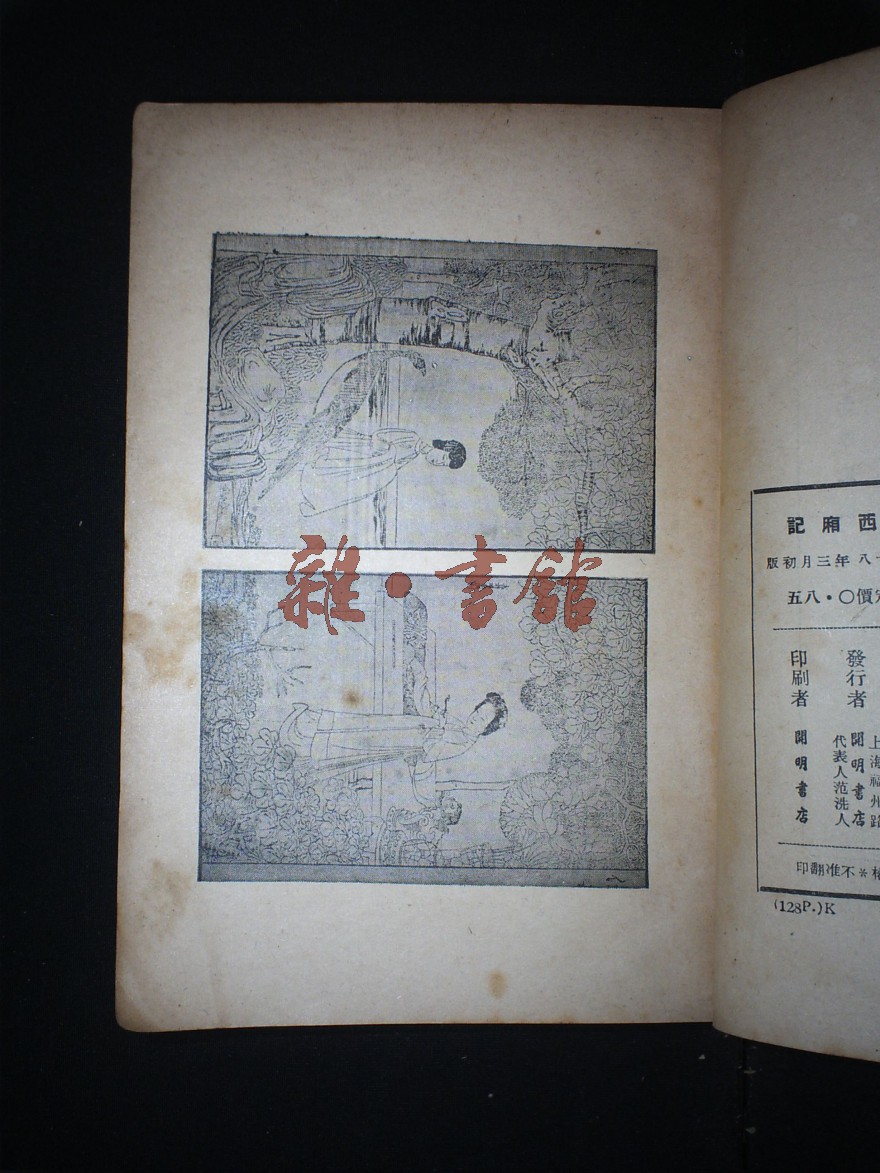 雜·書館
西廂記
八年三月初版
定價〇·八五
發行者
上海福州路
開明書店
代表人范洗人
印刷者
開明書店
不准翻印
(128P.)K